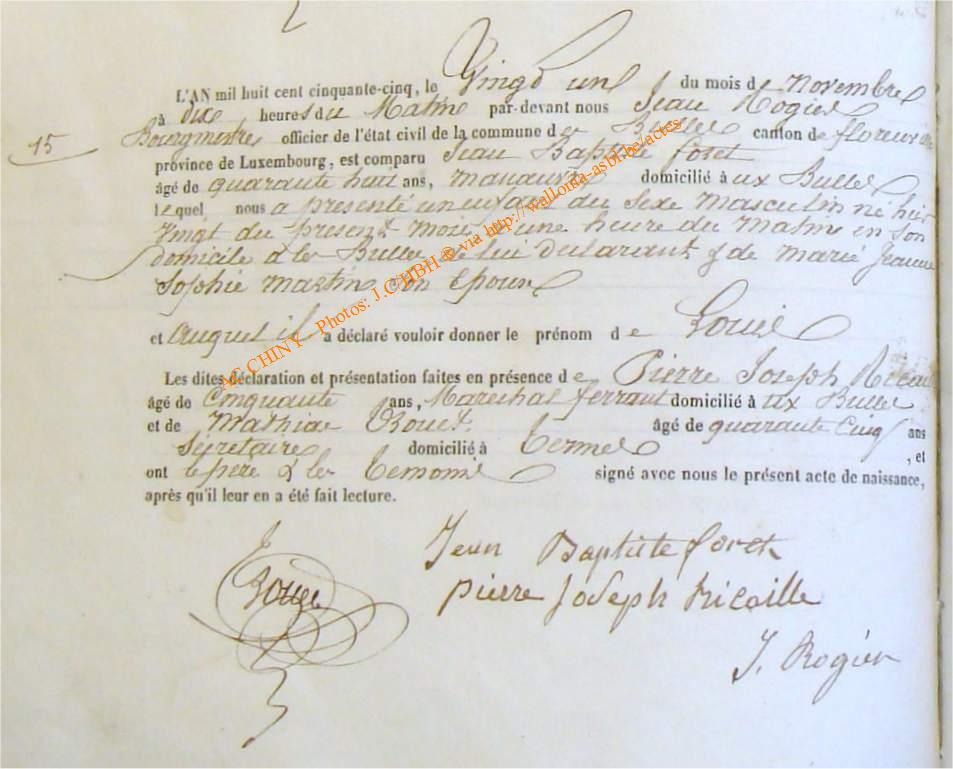 L'AN mil huit cent cinquante-cinq, le Vingt un du mois de Novembre
à dix heures du Matin par-devant nous Jean Rogier
15
Bourgmestre officier de l'état civil de la commune de Bulles canton de florenville
province de Luxembourg, est comparu Jean Baptiste foret
âgé de quarante huit ans, manœuvre domicilié à ux Bulles
lequel nous a présenté un enfant du Sexe Masculin né hier
Vingt du present mois a une heure du Matin en son
domicile a les Bulles de lui déclarant & de marie Jeanne
Sophie martin son Epouse
et Auquel il a déclaré vouloir donner le prénom de Louis
Les dites déclaration et présentation faites en présence de Pierre Joseph Ricail
âgé de Cinquante ans, Marechal ferrant domicilié à ux Bulles
et de Mathias Bouet âgé de quarante Cinq ans
Sécretaire domicilié à Termes , et
ont le père & les temoins signé avec nous le présent acte de naissance,
après qu'il leur en a été fait lecture.
Jean Baptiste foret
Pierre Joseph Ricaille
J. Rogier
AC CHINY Photos: J.C HBH ® via http://wallonia-asbl.be/actes